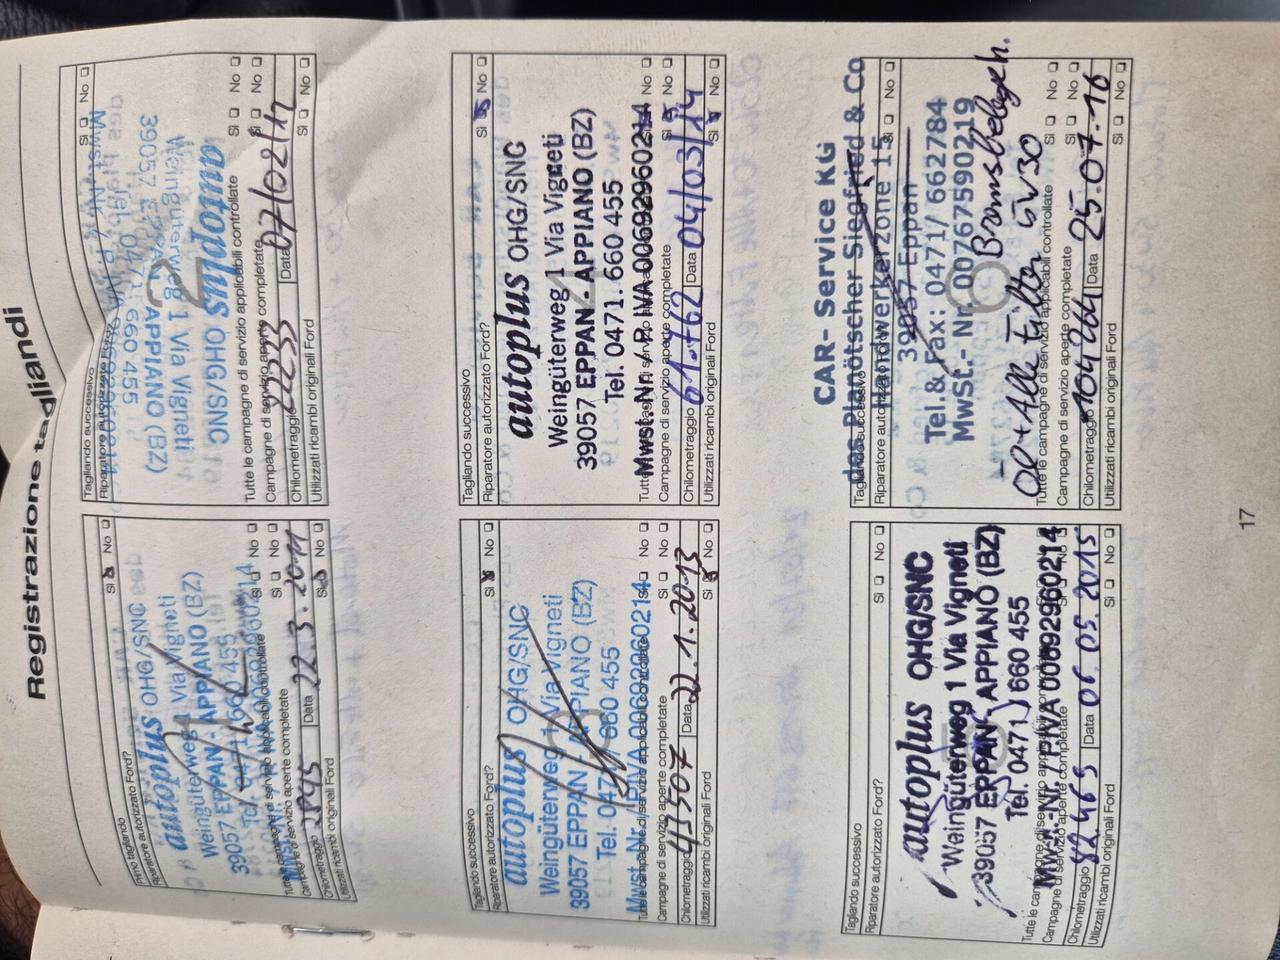 Registrazione tagliandi
Primo tagliando
Riparatore autorizzato Ford? Sì No
autoplus OHG/SNC
Weingüterweg 1 Via Vigneti
39057 EPPAN - APPIANO (BZ)
Tel. 0471 660 455
Tutte le campagne di servizio applicabili controllate Sì No
Campagne di servizio aperte completate Sì No
Chilometraggio Data 22.3.2011
Utilizzati ricambi originali Ford Sì No
Tagliando successivo
Riparatore autorizzato Ford? Sì No
autoplus OHG/SNC
Weingüterweg 1 Via Vigneti
39057 EPPAN APPIANO (BZ)
0471 660 455
Tutte le campagne di servizio applicabili controllate Sì No
Campagne di servizio aperte completate Sì No
Chilometraggio 22233 Data 07/02/12
Utilizzati ricambi originali Ford Sì No
Tagliando successivo
Riparatore autorizzato Ford? Sì No
autoplus OHG/SNC
Weingüterweg 1 Via Vigneti
39057 EPPAN - APPIANO (BZ)
Tel. 0471 660 455
Mwst.Nr. / P. IVA 00692960214
Tutte le campagne di servizio applicabili controllate Sì No
Campagne di servizio aperte completate Sì No
Chilometraggio 43507 Data 22.1.2013
Utilizzati ricambi originali Ford Sì No
Tagliando successivo
Riparatore autorizzato Ford? Sì No
autoplus OHG/SNC
Weingüterweg 1 Via Vigneti
39057 EPPAN - APPIANO (BZ)
Tel. 0471. 660 455
Mwst.Nr. / P. IVA 00692960214
Campagne di servizio aperte completate Sì No
Chilometraggio 61.762 Data 04/03/14
Utilizzati ricambi originali Ford Sì No
Tagliando successivo
Riparatore autorizzato Ford? Sì No
autoplus OHG/SNC
Weingüterweg 1 Via Vigneti
39057 EPPAN - APPIANO (BZ)
Tel. 0471 660 455
Mwst.-Nr. / P. IVA 00692960214
Tutte le campagne di servizio applicabili controllate Sì No
Campagne di servizio aperte completate Sì No
Chilometraggio 82.469 Data 06.05.2015
Utilizzati ricambi originali Ford Sì No
CAR- Service KG
des Planötscher Siegfried & Co
Tagliando successivo
Riparatore autorizzato Ford? Sì No
Handwerkerzone 15
39057 Eppan
Tel.& Fax: 0471/ 662784
Mwst.- Nr. 00767590219
Öl + Alle Filter 5W30 Bremsbelägeh.
Tutte le campagne di servizio applicabili controllate Sì No
Campagne di servizio aperte completate Sì No
Chilometraggio 104264 Data 25.07.16
Utilizzati ricambi originali Ford Sì No
17